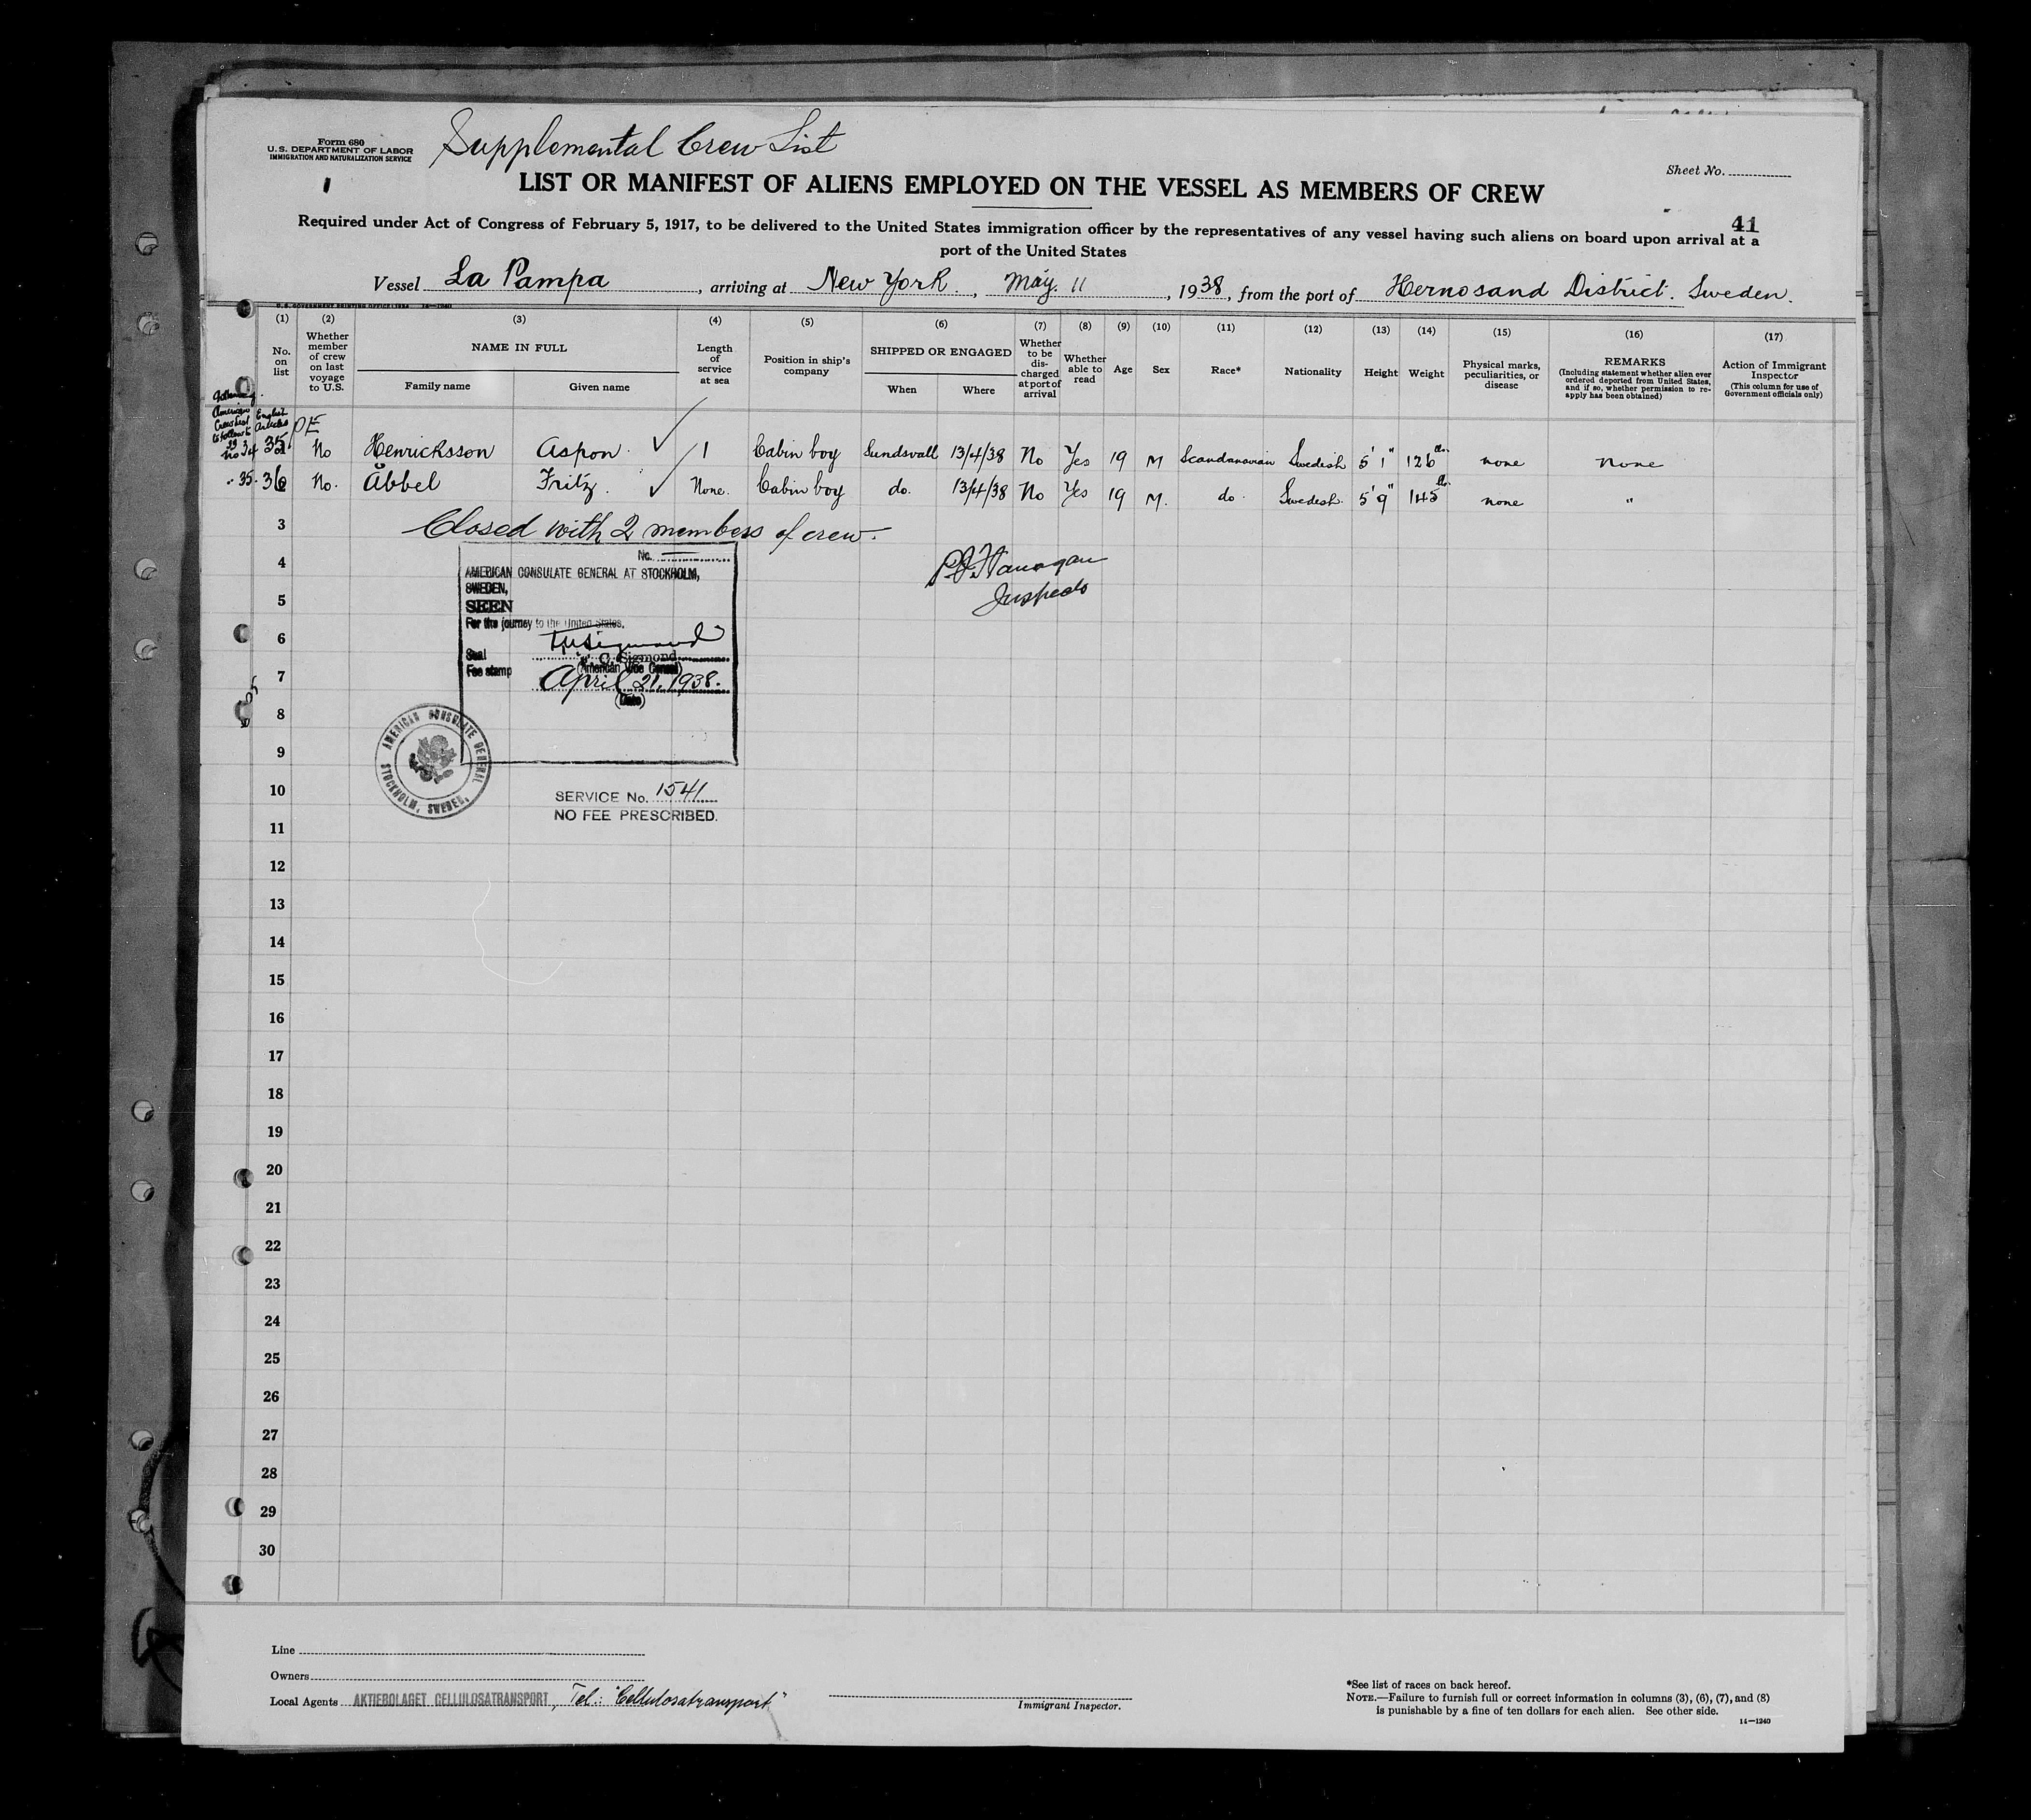 Form 680
U.S. DEPARTMENT OF LABOR
IMMIGRATION AND NATURALIZATION SERVICE
Supplemental Crew List
Sheet No.
1
LIST OR MANIFEST OF ALIENS EMPLOYED ON THE VESSEL AS MEMBERS OF CREW
41
Required under Act of Congress of February 5, 1917, to be delivered to the United States immigration officer by the representatives of any vessel having such aliens on board upon arrival at a
port of the United States
Vessel La Pampa, arriving at New York, May. 11, 1938, from the port of Hernosand District. Sweden.
U.S. GOVERNMENT PRINTING OFFICE: 1934 14—1240
(1) (2) (3) (4) (5) (6) (7) (8) (9) (10) (11) (12) (13) (14) (15) (16) (17)
No. on list
Whether member of crew on last voyage to U.S.
NAME IN FULL
Family name Given name
Length of service at sea
Position in ship's company
SHIPPED OR ENGAGED
When Where
Whether to be discharged at port of arrival
Whether able to read
Age
Sex
Race*
Nationality
Height
Weight
Physical marks, peculiarities, or disease
REMARKS
(Including statement whether alien ever ordered deported from United States, and if so, whether permission to reapply has been obtained)
Action of Immigrant Inspector
(This column for use of Government officials only)
American English
Crew List Articles
PE
No 34 35 No Henricksson Aspon. 1 Cabin boy Sundsvall 13/4/38 No Yes 19 M Scandanavian Swedish 5' 1" 126 lbs. none none
35. 36 No. Åbbel Fritz. None. Cabin boy do. 13/4/38 No Yes 19 M. do. Swedish. 5' 9" 145 lbs. none "
3
Closed with 2 members of crew.
No.
4
AMERICAN CONSULATE GENERAL AT STOCKHOLM,
SWEDEN,
P.J. Flanagan
Inspector
5
SEEN
For the journey to the United States.
6
Seal
C. Sigmond
(American Vice Consul)
7
Fee stamp
April 21, 1938.
(Date)
8
AMERICAN CONSULATE GENERAL
STOCKHOLM, SWEDEN.
9
10
SERVICE No. 1541
NO FEE PRESCRIBED.
11
12
13
14
15
16
17
18
19
20
21
22
23
24
25
26
27
28
29
30
Line
Owners
Local Agents AKTIEBOLAGET CELLULOSATRANSPORT, Tel.: "Cellulosatransport"
Immigrant Inspector.
*See list of races on back hereof.
NOTE.—Failure to furnish full or correct information in columns (3), (6), (7), and (8)
is punishable by a fine of ten dollars for each alien. See other side.
14—1240